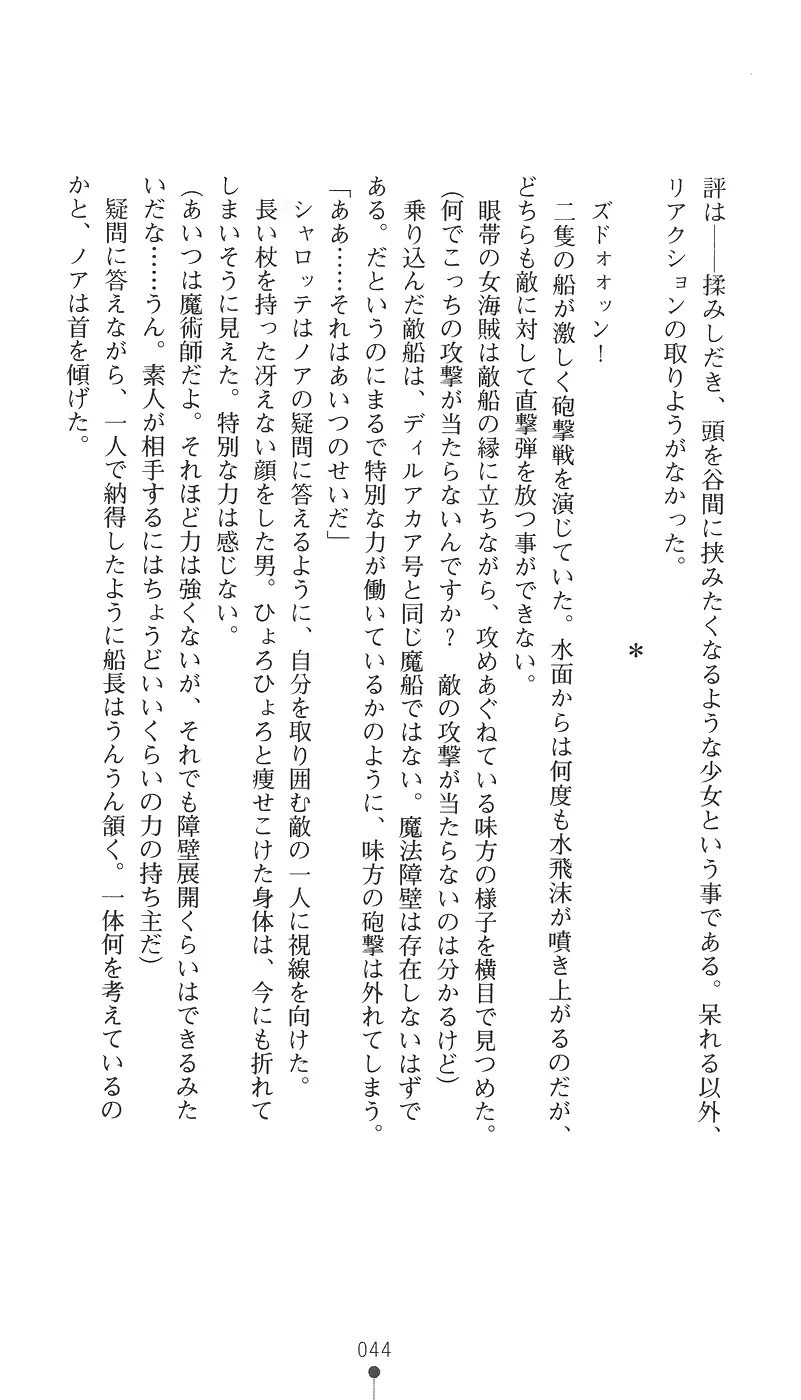 評は――揉みしだき、頭を谷間に挟みたくなるような少女という事である。呆れる以外、
リアクションの取りようがなかった。
＊
ズドォォッン！
二隻の船が激しく砲撃戦を演じていた。水面からは何度も水飛沫が噴き上がるのだが、
どちらも敵に対して直撃弾を放つ事ができない。
眼帯の女海賊は敵船の縁に立ちながら、攻めあぐねている味方の様子を横目で見つめた。
（何でこっちの攻撃が当たらないんですか？　敵の攻撃が当たらないのは分かるけど）
乗り込んだ敵船は、ディルアカア号と同じ魔船ではない。魔法障壁は存在しないはずで
ある。だというのにまるで特別な力が働いているかのように、味方の砲撃は外れてしまう。
「ああ……それはあいつのせいだ」
シャロッテはノアの疑問に答えるように、自分を取り囲む敵の一人に視線を向けた。
長い杖を持った冴えない顔をした男。ひょろひょろと痩せこけた身体は、今にも折れて
しまいそうに見えた。特別な力は感じない。
（あいつは魔術師だよ。それほど力は強くないが、それでも障壁展開くらいはできるみた
いだな……うん。素人が相手するにはちょうどいいくらいの力の持ち主だ）
疑問に答えながら、一人で納得したように船長はうんうん頷く。一体何を考えているの
かと、ノアは首を傾げた。
044